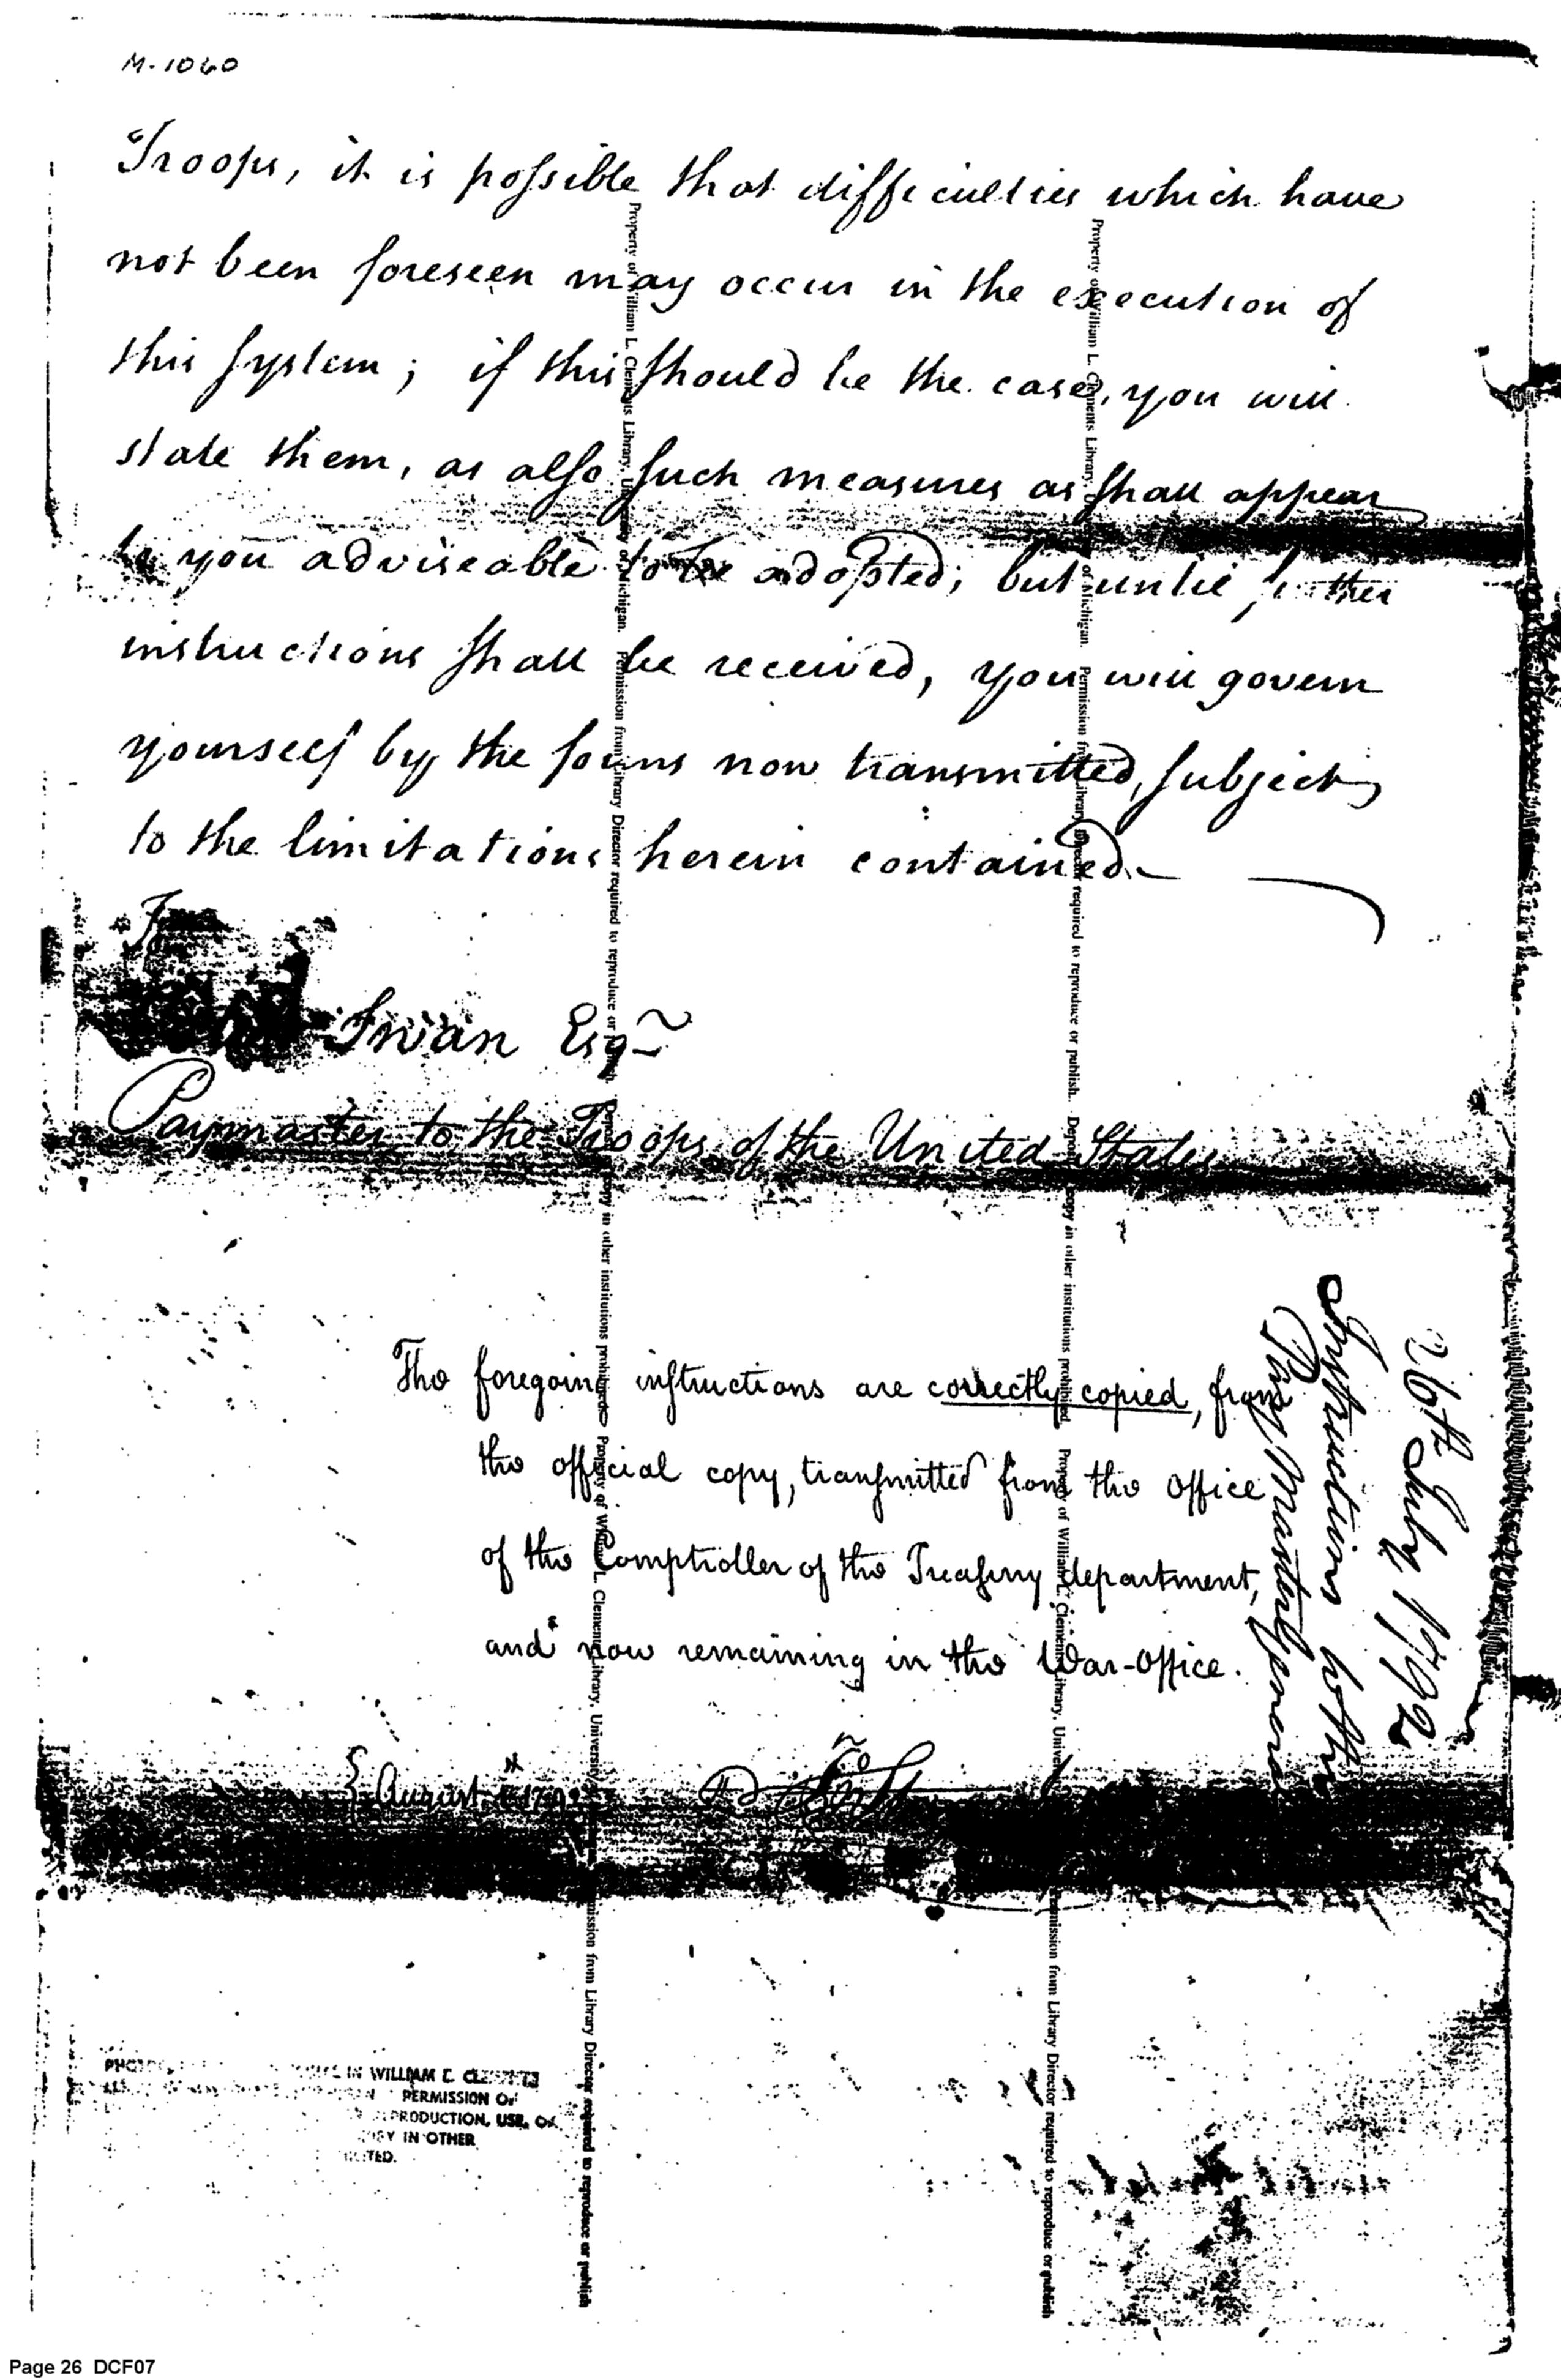 M-1060
Troops, it is possible that difficulties which have
not been foreseen may occur in the execution of
this system; if this should be the case, you will
state them, as also such measures as shall appear
to you adviseable to be adopted; but until further
instructions shall be received, you will govern
yourself by the forms now transmitted, subject
to the limitations herein contained.
Swan Esqr
Paymaster to the Troops of the United States
The foregoing instructions are correctly copied, from
the official copy, transmitted from the office
of the Comptroller of the Treasury department,
and now remaining in the War-office.
August 1792
26th July 1792
Instructions to the
Pay Master General
Property of William L. Clements Library, University of Michigan. Permission from Library Director required to reproduce or publish. Deposit copy in other institutions prohibited.
Property of William L. Clements Library, University of Michigan. Permission from Library Director required to reproduce or publish. Deposit copy in other institutions prohibited.
Property of William L. Clements Library, University Permission from Library Director required to reproduce or publish
Property of William L. Clements Library, University Permission from Library Director required to reproduce or publish
IN WILLIAM L. CLEMENTS
PERMISSION OF
REPRODUCTION, USE, OR
COPY IN OTHER
Page 26 DCF07